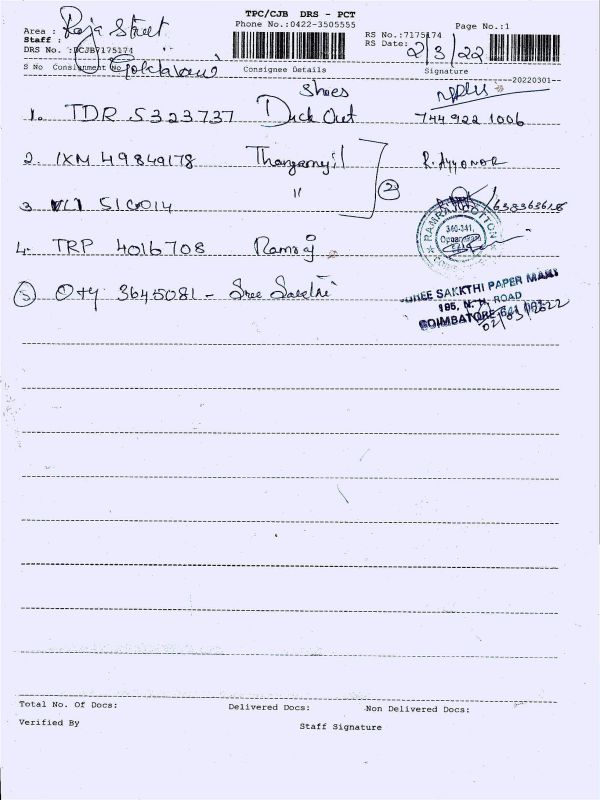 TPC/CJB DRS - PCT
Phone No.:0422-3505555
Page No.:1
Area : Raja Street
RS No.:7175174
Staff :
RS Date: 2/3/22
DRS No. :BCJB7175174
S No Consignment No Consignee Details Signature
20220301
Shoes
1. TDR 5323737 Duck Out
744 922 1006
2. IXM 49849178 Thangamyil
R. Ayyanar
" 2
3 510014
RAMRAJ COTTON
340-341,
4. TRP 4016708 Ramraj
5 3645081 - Sree Sakthi
SREE SAKKTHI PAPER MART
195, N. H. ROAD
COIMBATORE
02/03/2022
Total No. Of Docs: Delivered Docs: Non Delivered Docs:
Verified By Staff Signature